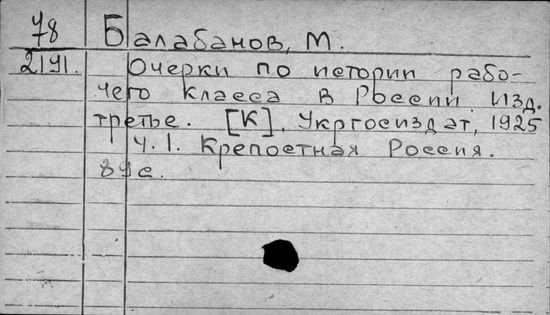 78 Балабанов, М.
2191. Очерки по истории рабо-
чего класса в России. Изд.
третье. [К], Укргосиздат, 1925
Ч. I. Крепостная Россия.
89с.